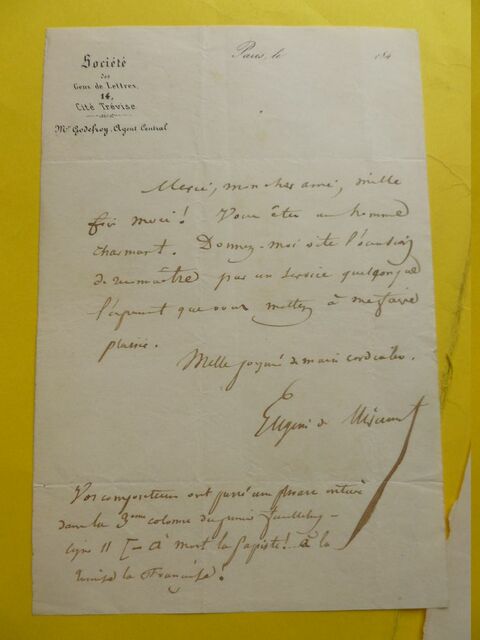 Société
des
Gens de Lettres,
14,
Cité Trévise
Mr Godefroy, Agent Central
Paris, le 184
Merci, mon cher ami, mille
fois merci ! Vous êtes un homme
charmant. Donnez-moi vite l'occasion
de reconnaître par un service quelconque
l'empressement que vous mettez à me faire
plaisir.
Mille poignées de main cordiales.
Eugène de Mirecourt
Vos compositeurs ont passé une phrase entière
dans la 3eme colonne du premier feuilleton –
ligne 11 [– à mort la papiste ! à la
la Française !